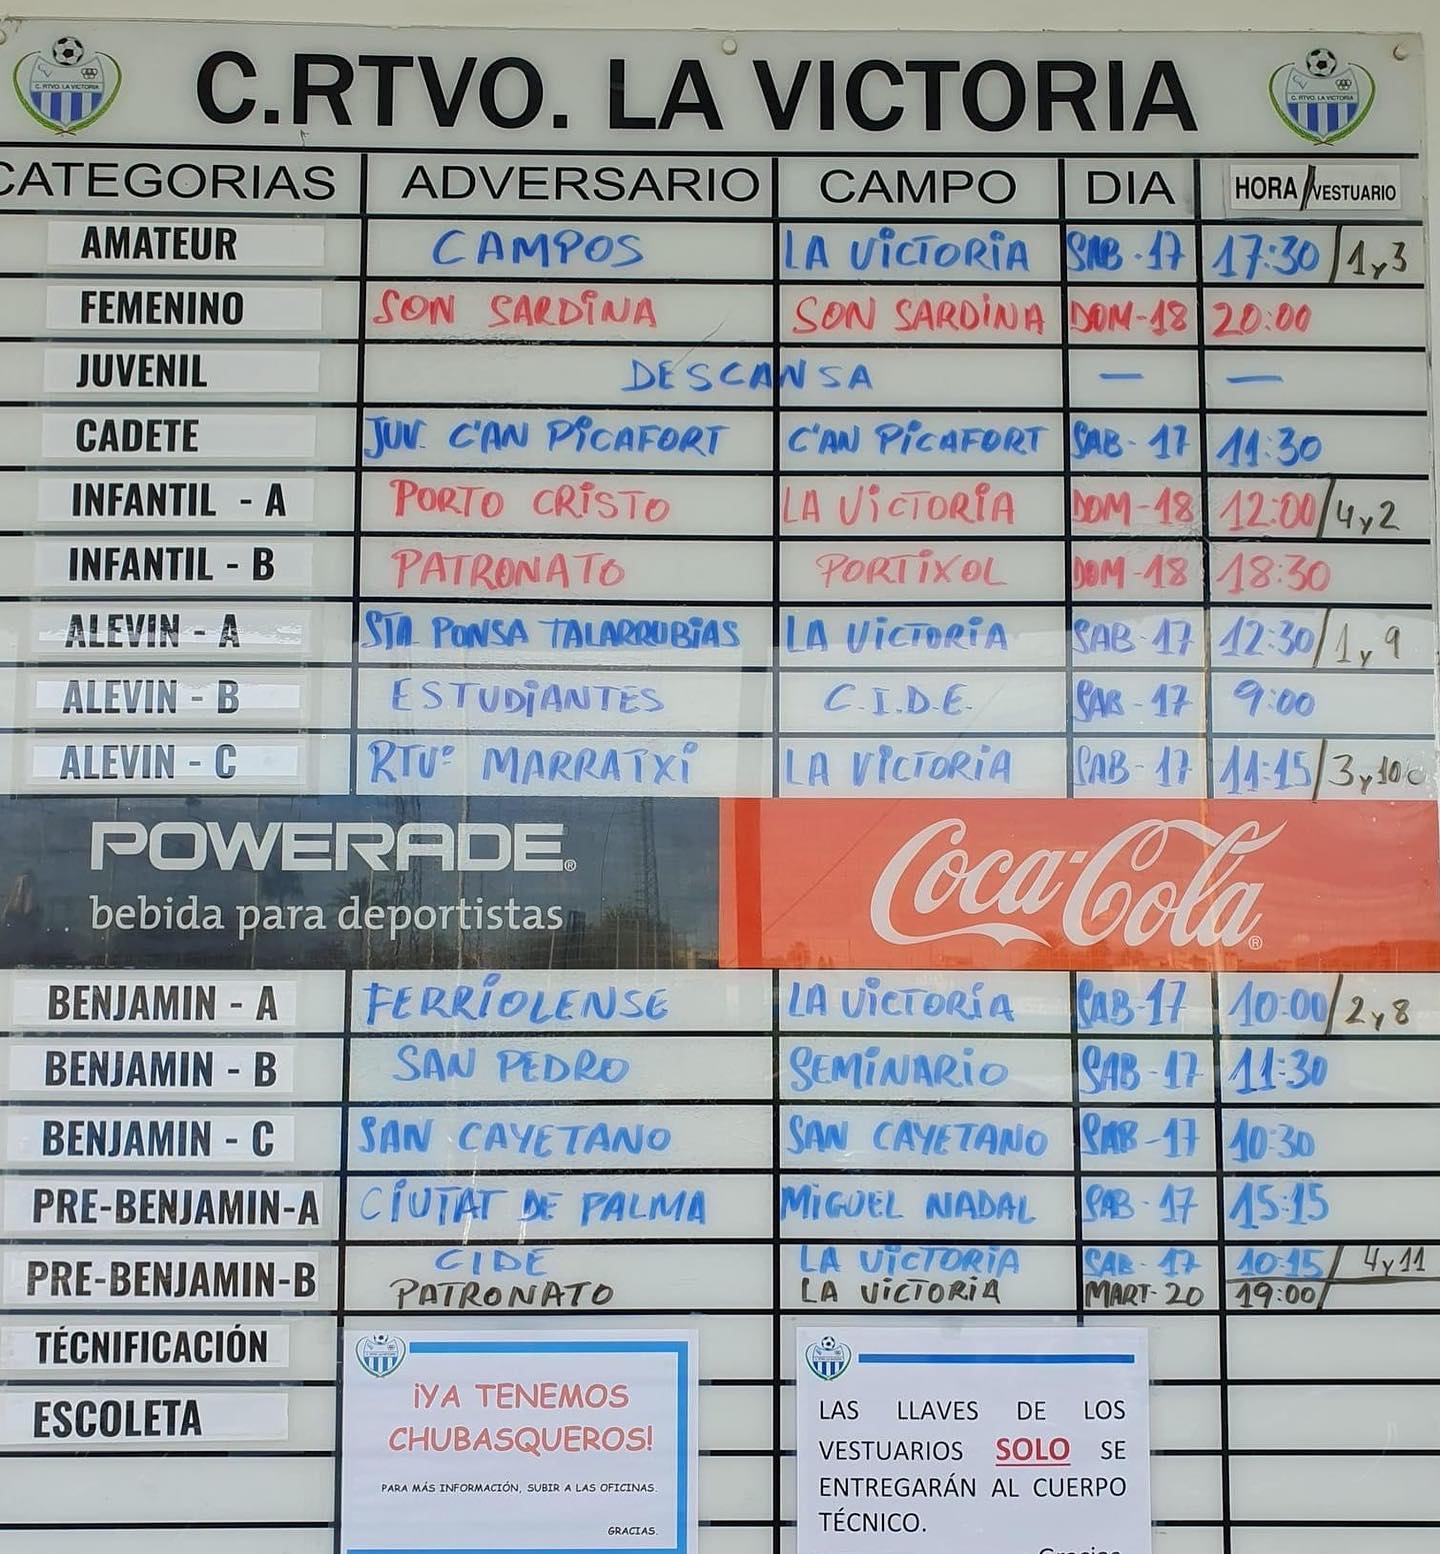 C.RTVO. LA VICTORIA
CATEGORIAS ADVERSARIO CAMPO DIA HORA/VESTUARIO
AMATEUR CAMPOS LA VICTORIA SAB-17 17:30/1y3
FEMENINO SON SARDINA SON SARDINA DOM-18 20:00
JUVENIL DESCANSA — —
CADETE JUV. C'AN PICAFORT C'AN PICAFORT SAB-17 11:30
INFANTIL - A PORTO CRISTO LA VICTORIA DOM-18 12:00/4y2
INFANTIL - B PATRONATO PORTIXOL DOM-18 18:30
ALEVIN - A STA PONSA TALARRUBIAS LA VICTORIA SAB-17 12:30/1y9
ALEVIN - B ESTUDIANTES C.I.D.E. SAB-17 9:00
ALEVIN - C RTVº MARRATXI LA VICTORIA SAB-17 11:15/3y10
POWERADE®
bebida para deportistas
Coca-Cola®
BENJAMIN - A FERRIOLENSE LA VICTORIA SAB-17 10:00/2y8
BENJAMIN - B SAN PEDRO SEMINARIO SAB-17 11:30
BENJAMIN - C SAN CAYETANO SAN CAYETANO SAB-17 10:30
PRE-BENJAMIN-A CIUTAT DE PALMA MIGUEL NADAL SAB-17 15:15
PRE-BENJAMIN-B CIDE LA VICTORIA SAB-17 10:15/4y11
PATRONATO LA VICTORIA MART-20 19:00/
TÉCNIFICACIÓN
ESCOLETA
¡YA TENEMOS
CHUBASQUEROS!
PARA MÁS INFORMACIÓN, SUBIR A LAS OFICINAS.
GRACIAS.
LAS LLAVES DE LOS
VESTUARIOS SOLO SE
ENTREGARÁN AL CUERPO
TÉCNICO.
Gracias.